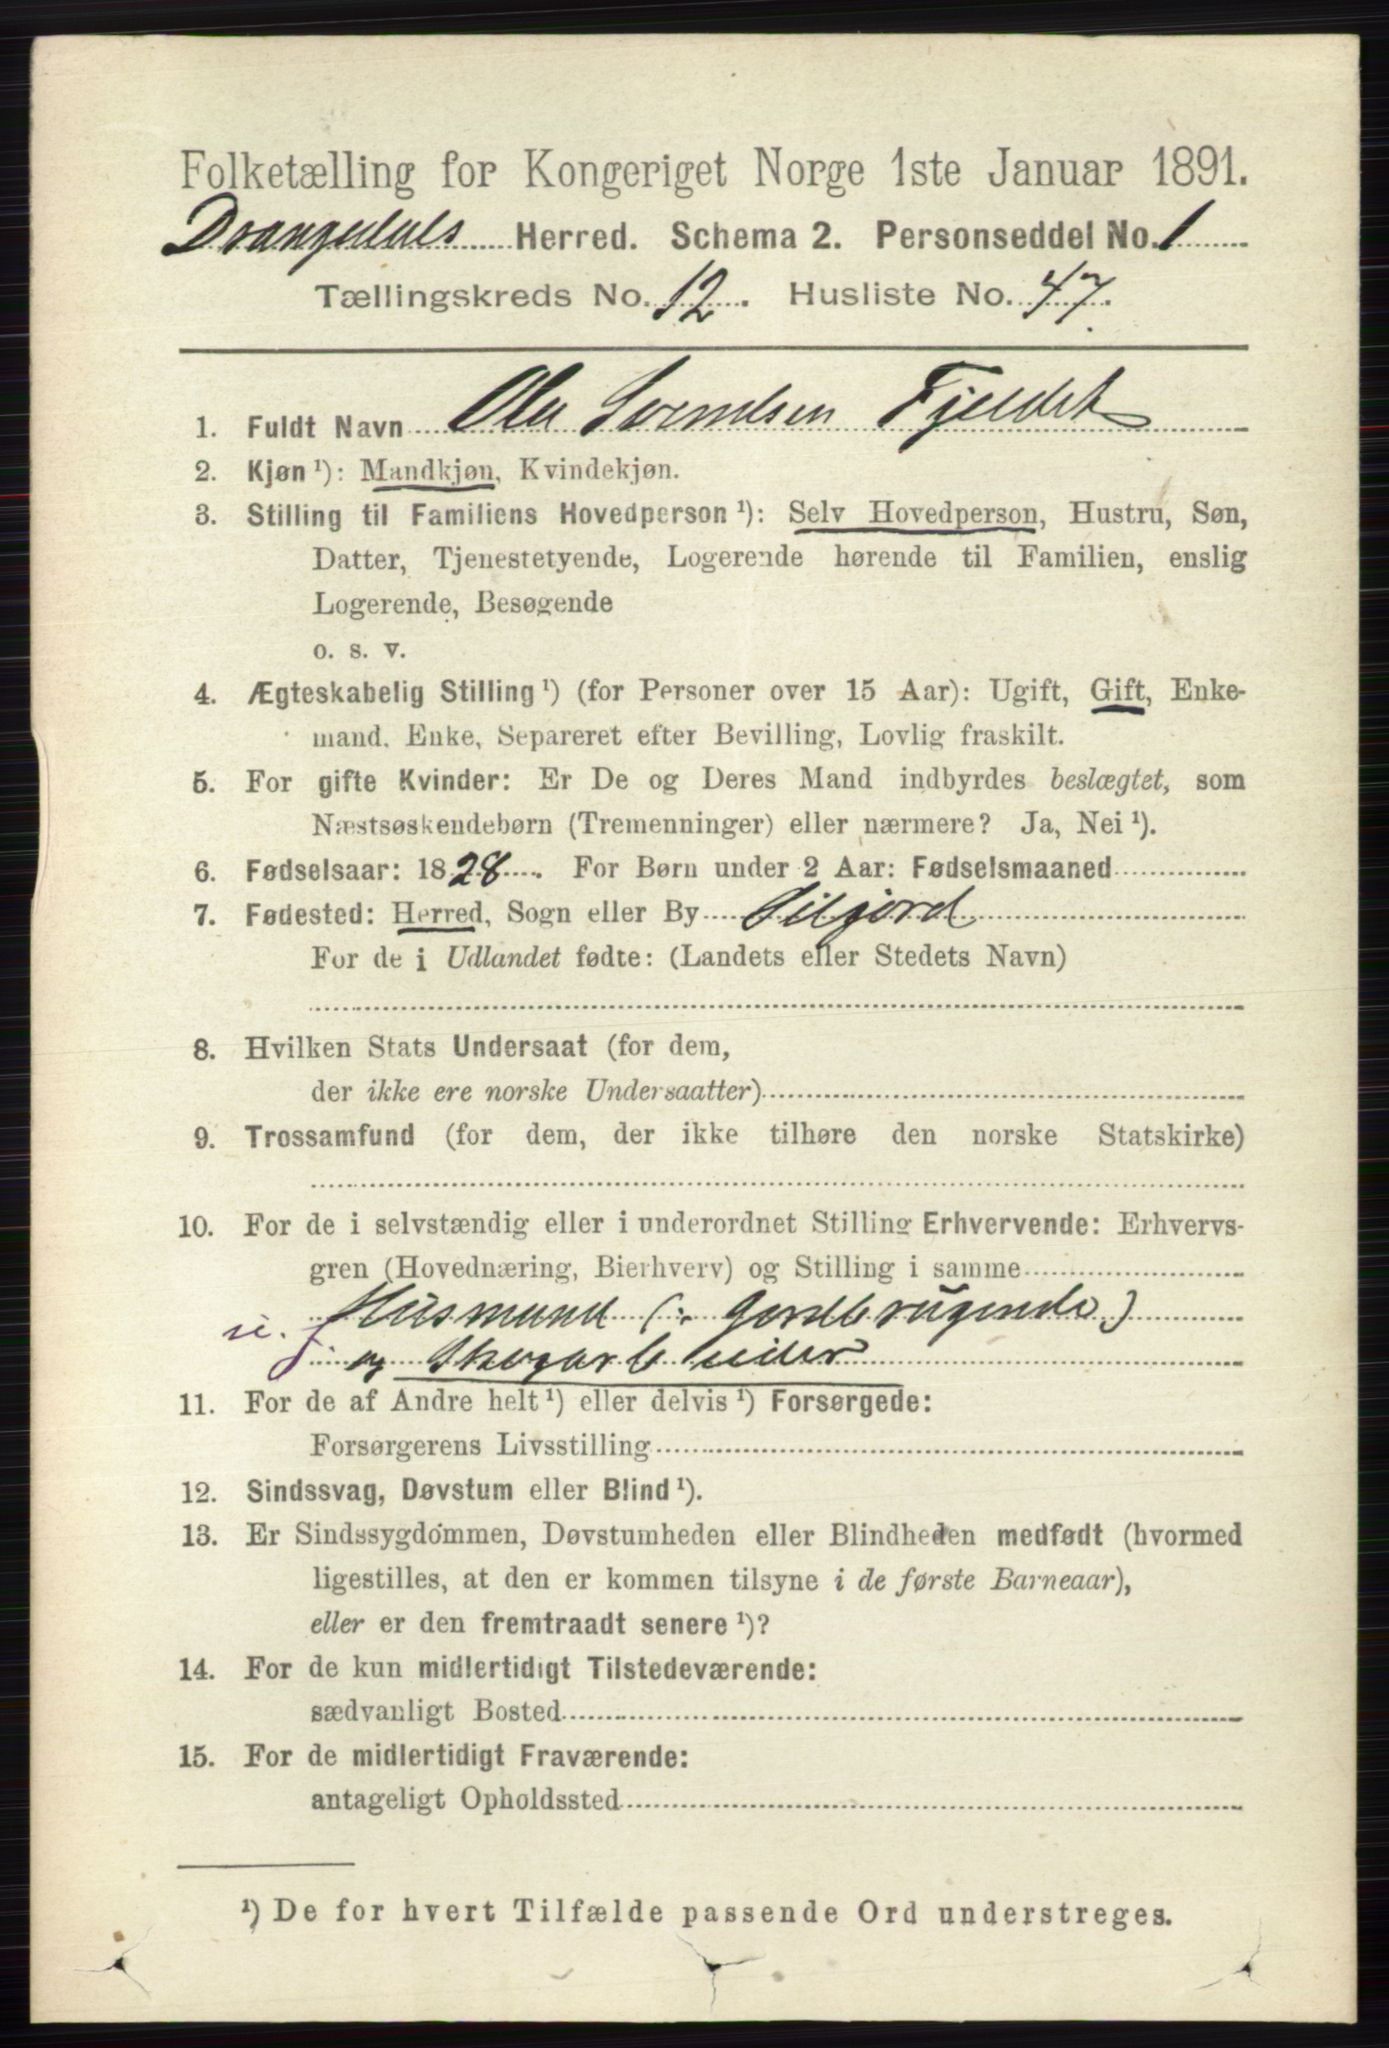 Folketælling for Kongeriget Norge 1ste Januar 1891.
Drangedals Herred. Schema 2. Personseddel No. 1
Tællingskreds No. 12. Husliste No. 47.
1. Fuldt Navn Ole Svendsen Fjeldet
2. Kjøn ¹): Mandkjøn, Kvindekjøn.
3. Stilling til Familiens Hovedperson ¹): Selv Hovedperson, Hustru, Søn,
Datter, Tjenestetyende, Logerende hørende til Familien, enslig
Logerende, Besøgende
o. s. v.
4. Ægteskabelig Stilling ¹) (for Personer over 15 Aar): Ugift, Gift, Enke-
mand, Enke, Separeret efter Bevilling, Lovlig fraskilt.
5. For gifte Kvinder: Er De og Deres Mand indbyrdes beslægtet, som
Næstsøskendebørn (Tremenninger) eller nærmere? Ja, Nei ¹).
6. Fødselsaar: 1828. For Børn under 2 Aar: Fødselsmaaned
7. Fødested: Herred, Sogn eller By Siljord
For de i Udlandet fødte: (Landets eller Stedets Navn)
8. Hvilken Stats Undersaat (for dem,
der ikke ere norske Undersaatter)
9. Trossamfund (for dem, der ikke tilhøre den norske Statskirke)
10. For de i selvstændig eller i underordnet Stilling Erhvervende: Erhvervs-
gren (Hovednæring, Bierhverv) og Stilling i samme
Husmand (: Jordbrugende)
og Skogarbeider
11. For de af Andre helt ¹) eller delvis ¹) Forsørgede:
Forsørgerens Livsstilling
12. Sindssvag, Døvstum eller Blind ¹).
13. Er Sindssygdommen, Døvstumheden eller Blindheden medfødt (hvormed
ligestilles, at den er kommen tilsyne i de første Barneaar),
eller er den fremtraadt senere ¹)?
14. For de kun midlertidigt Tilstedeværende:
sædvanligt Bosted
15. For de midlertidigt Fraværende:
antageligt Opholdssted
¹) De for hvert Tilfælde passende Ord understreges.